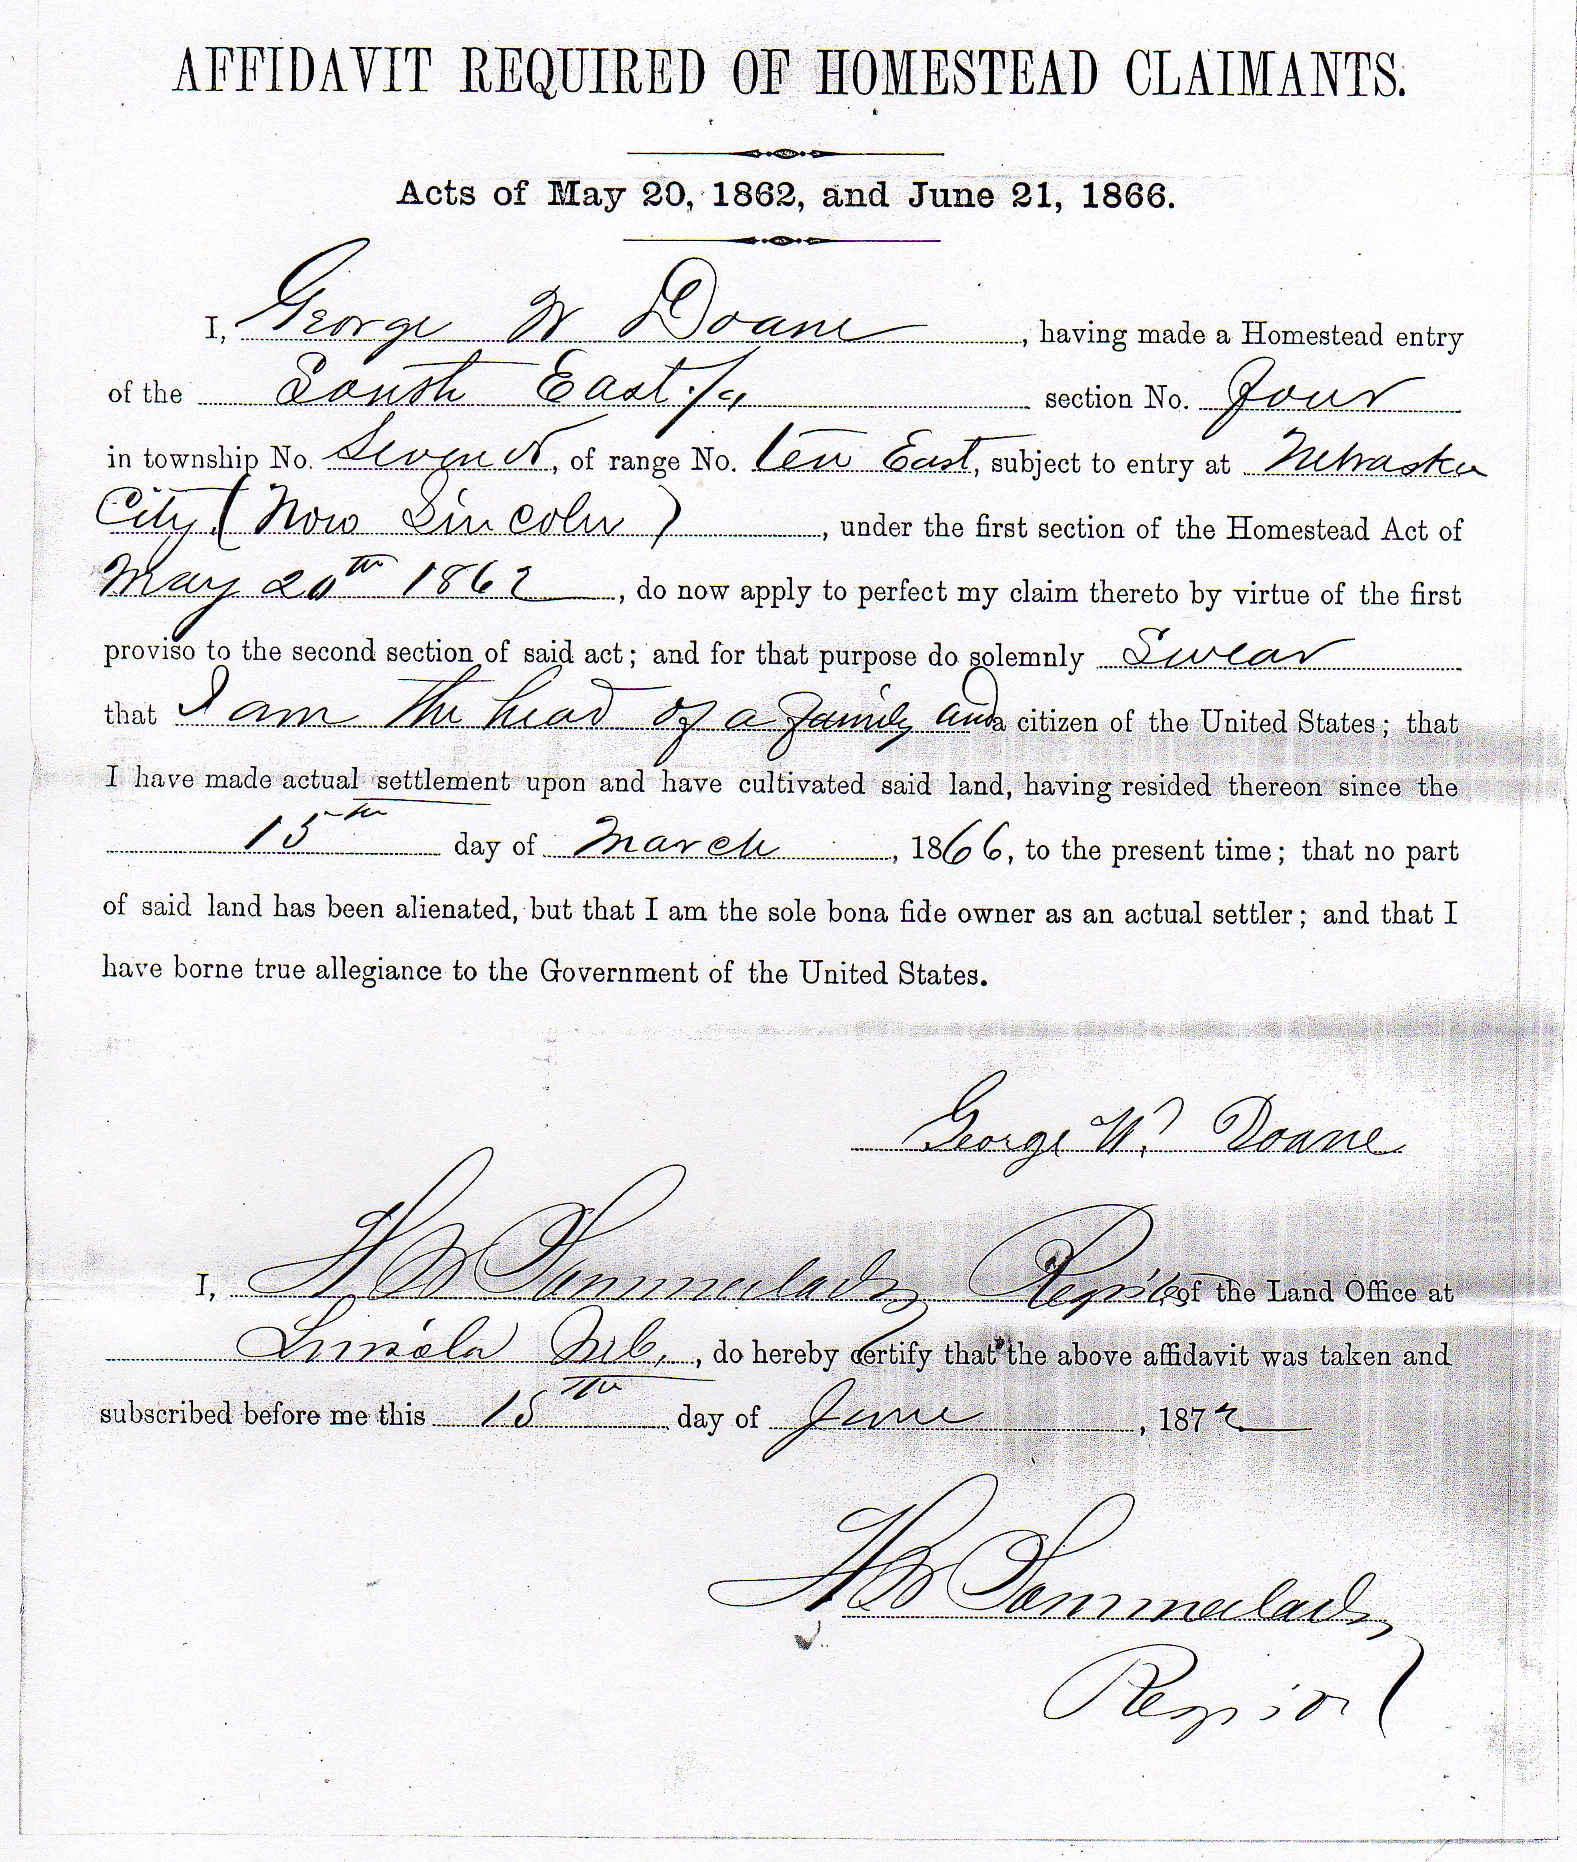 AFFIDAVIT REQUIRED OF HOMESTEAD CLAIMANTS.
Acts of May 20, 1862, and June 21, 1866.
I, George W Doane, having made a Homestead entry
of the South East 1/4 section No. four
in township No. Seven N, of range No. ten East, subject to entry at Nebraska
City (Now Lincoln), under the first section of the Homestead Act of
May 20th 1862, do now apply to perfect my claim thereto by virtue of the first
proviso to the second section of said act; and for that purpose do solemnly Swear
that I am the head of a family and a citizen of the United States; that
I have made actual settlement upon and have cultivated said land, having resided thereon since the
15th day of March, 1866, to the present time; that no part
of said land has been alienated, but that I am the sole bona fide owner as an actual settler; and that I
have borne true allegiance to the Government of the United States.
George W. Doane
I, Register of the Land Office at
Lincoln Neb., do hereby certify that the above affidavit was taken and
subscribed before me this 15th day of June, 1872